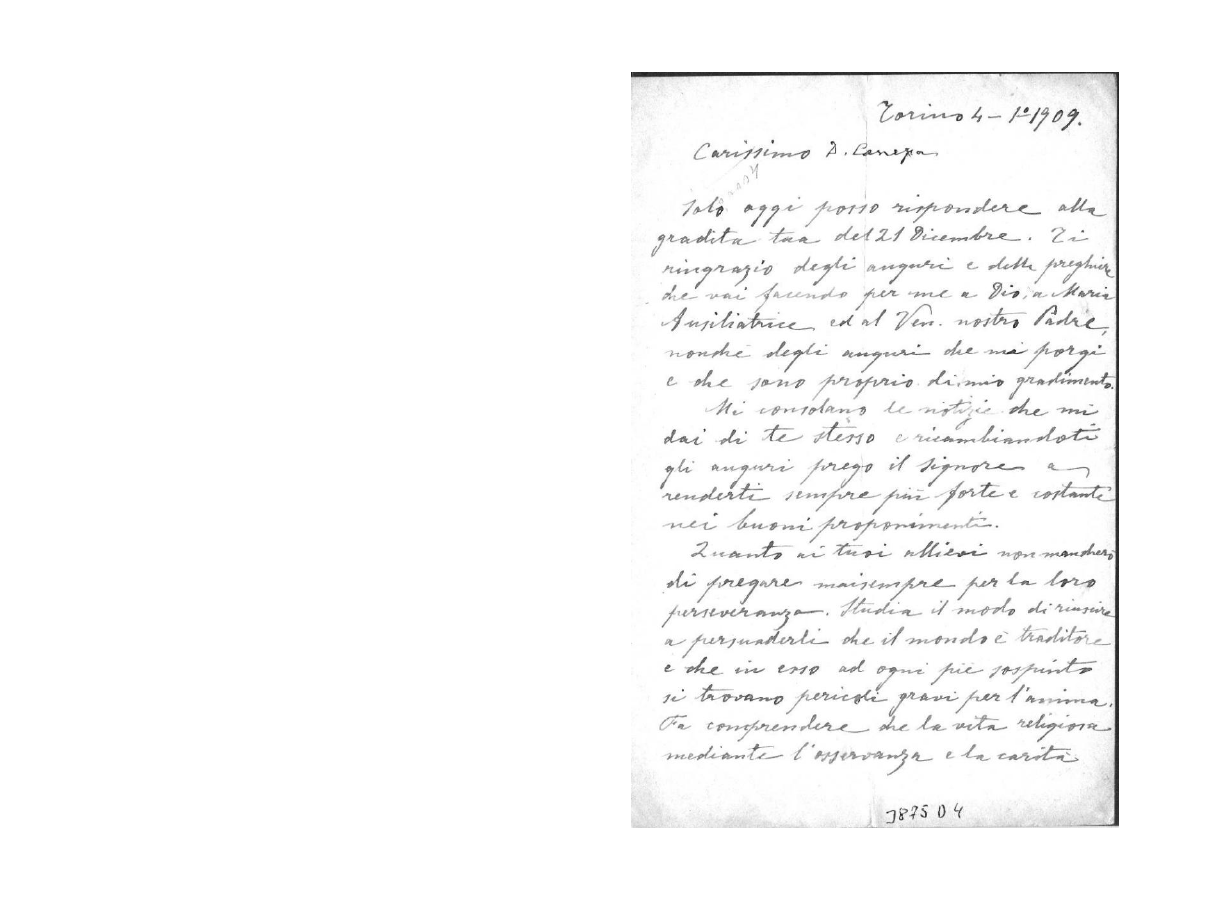 Torino 4 – 1° 1909.
Carissimo D. Canepa
Solo oggi posso rispondere alla
gradita tua del 21 Dicembre. Ti
ringrazio degli auguri e delle preghiere
che vai facendo per me a Dio, a Maria
Ausiliatrice ed al Ven. nostro Padre,
nonchè degli auguri che mi porgi
e che sono proprio di mio gradimento.
Mi consolano le notizie che mi
dai di te stesso e ricambiandoti
gli auguri prego il Signore a
renderti sempre più forte e costante
nei buoni proponimenti.
Quanto ai tuoi allievi non mancherò
di pregare maisempre per la loro
perseveranza. Studia il modo di riuscire
a persuaderli che il mondo è traditore
e che in esso ad ogni piè sospinto
si trovano pericoli gravi per l'anima.
Fa comprendere che la vita religiosa
mediante l'osservanza e la carità
3875 D 4